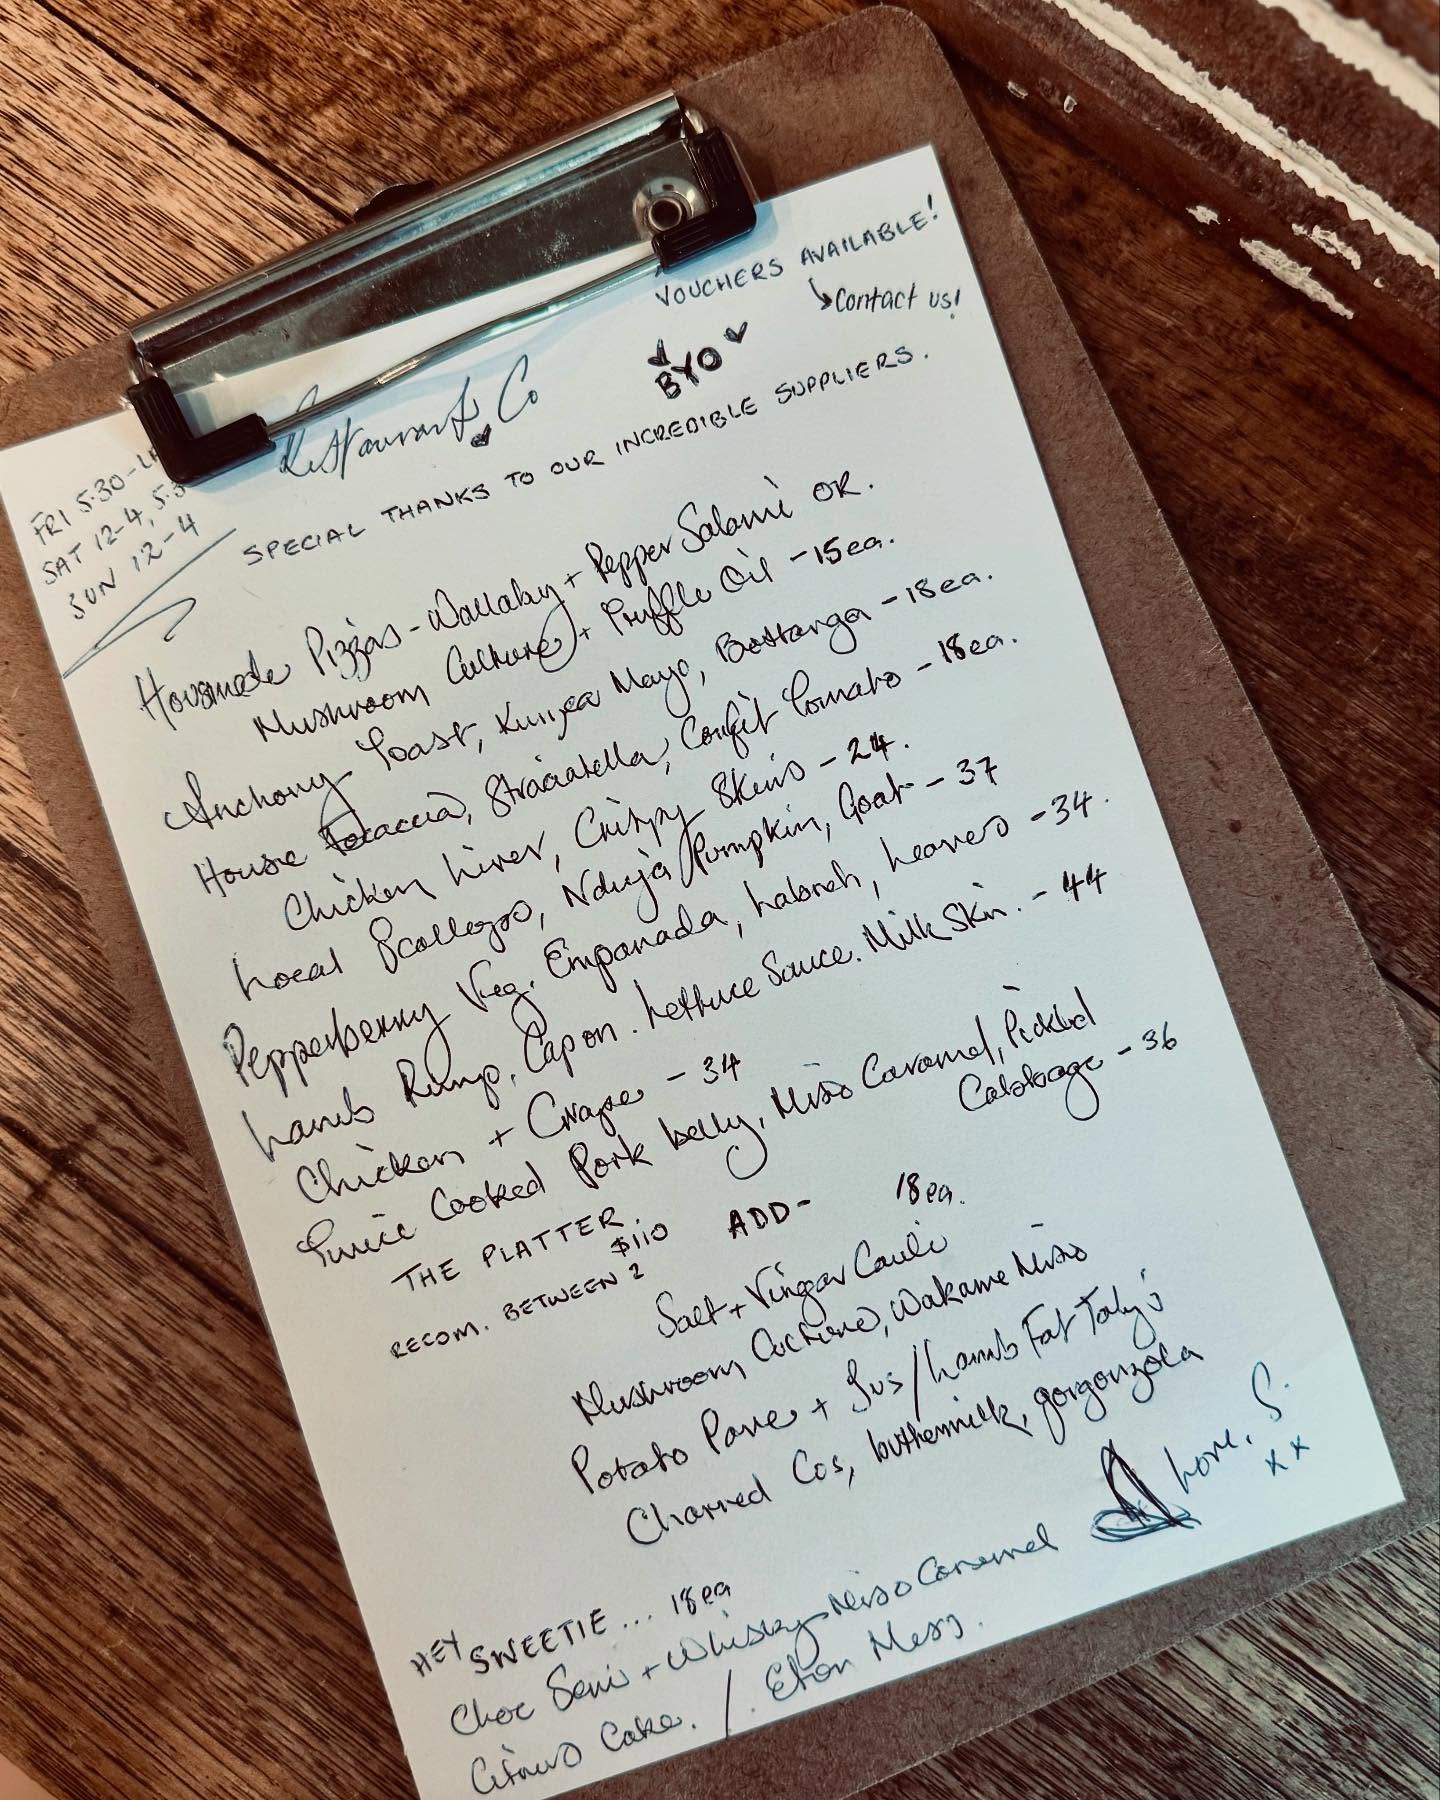 VOUCHERS AVAILABLE!
↳ Contact us!
BYO
Restaurant & Co
FRI 5.30-L
SAT 12-4, 5.3
SUN 12-4
SPECIAL THANKS TO OUR INCREDIBLE SUPPLIERS.
Housmade Pizzas - Wallaby + Pepper Salami OR.
Mushroom Culture + Truffle Oil - 15ea.
Anchovy Toast, Kunzea Mayo, Bottarga - 18ea.
House Focaccia, Straciatella, Confit Tomato - 18ea.
Chicken Liver, Crispy Skins - 24.
Local Scallops, Nduja / Pumpkin, Goat - 37
Pepperberry Veg. Empanada, Labneh, Leaves - 34.
Lamb Rump, Capon. Lettuce Sauce. Milk Skin. - 44
Chicken + Grape - 34
Twice Cooked Pork belly, Miso Caramel, Pickled
Cabbage - 36
THE PLATTER
$110
RECOM. BETWEEN 2
ADD - 18ea.
Salt + Vingar Cauli
Mushroom, Wakame Miso
Potato Pave + Jus / Lamb Fat Taty's
Charred Cos, buttermilk, gorgonzola
Love. S.
x x
HEY SWEETIE... 18ea
Choc Semi + Whisky Miso Caramel
Citrus Cake. / Eton Mess.